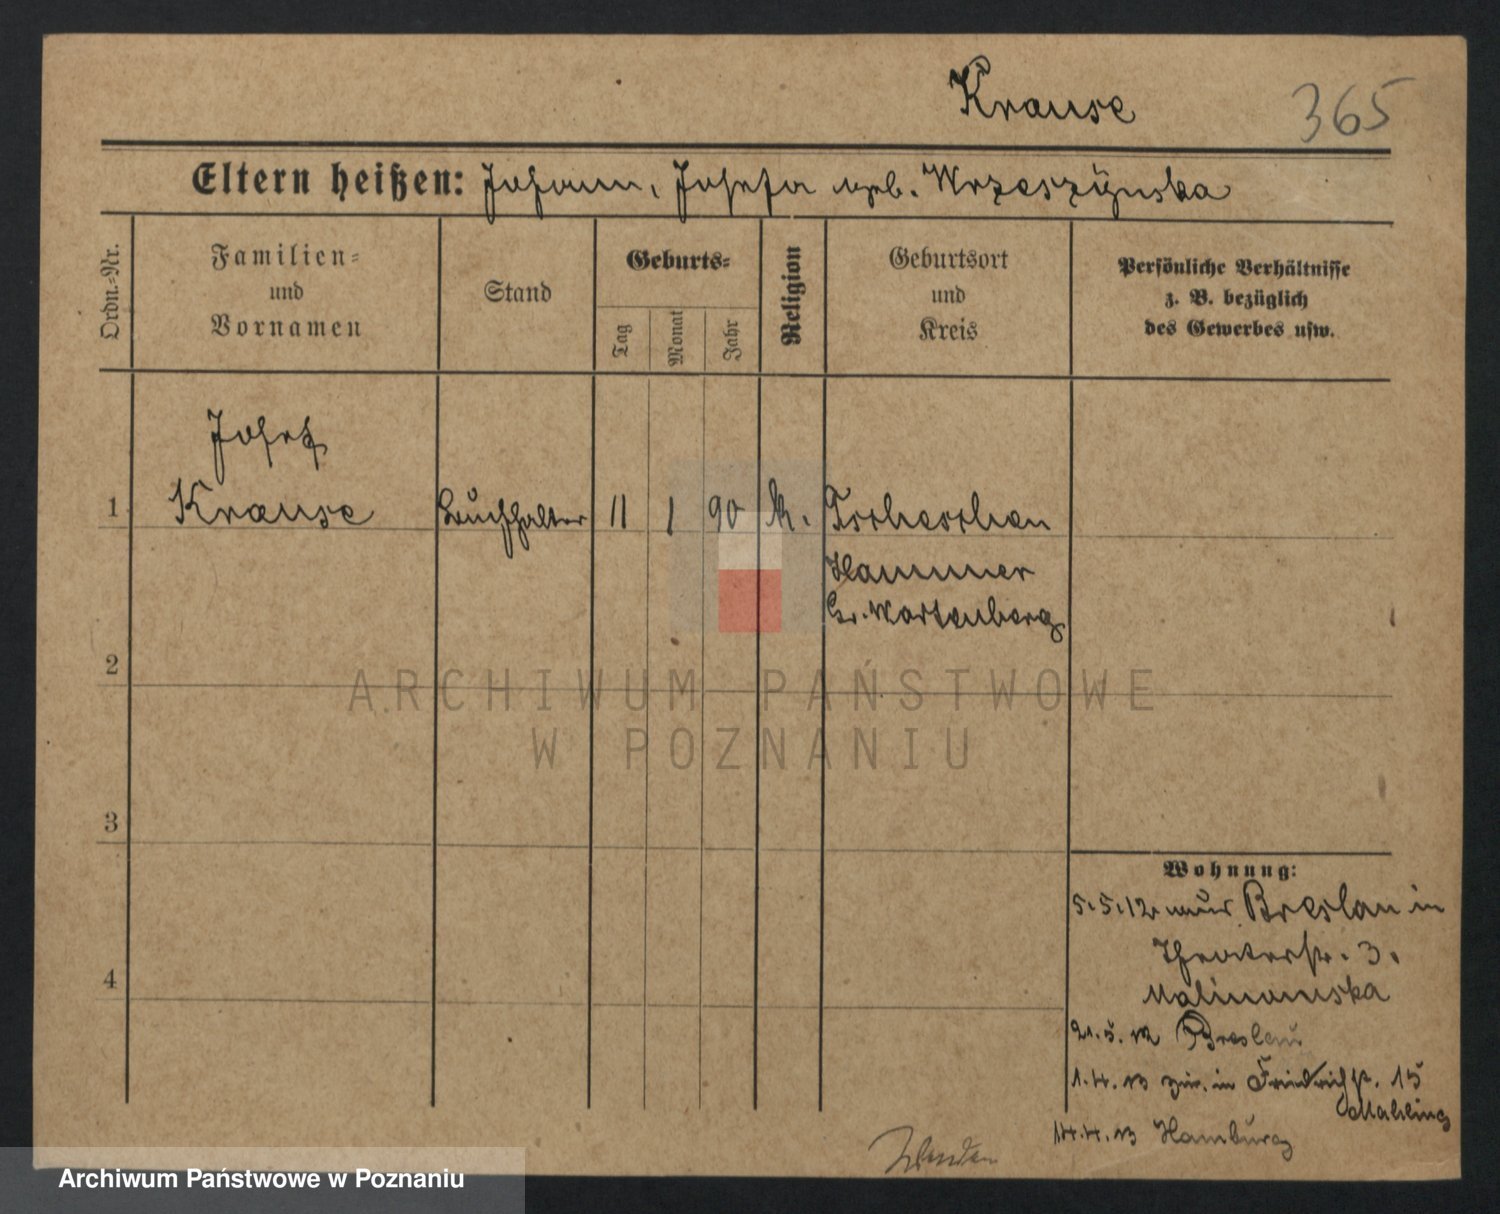 Krause 365
Eltern heißen: Johann, Josefa geb. Wrzeszÿnska
Ordn.-Nr.
Familien-
und
Vornamen
Stand
Geburts-
Tag
Monat
Jahr
Religion
Geburtsort
und
Kreis
Persönliche Verhältnisse
z. B. bezüglich
des Gewerbes usw.
Josef
1 Krause Buchhalter 11 1 90 k. Tscheschen
Hammer
Gr. Wartenberg
2
3
4
Wohnung:
5.5.12 aus Breslau in
Theaterstr. 3.
Malinowska
21.5.12 Breslau
1.4.13 zur. in Friedrichstr. 15
Mahling
14.4.13 Hamburg
ARCHIWUM PAŃSTWOWE
W POZNANIU
Archiwum Państwowe w Poznaniu